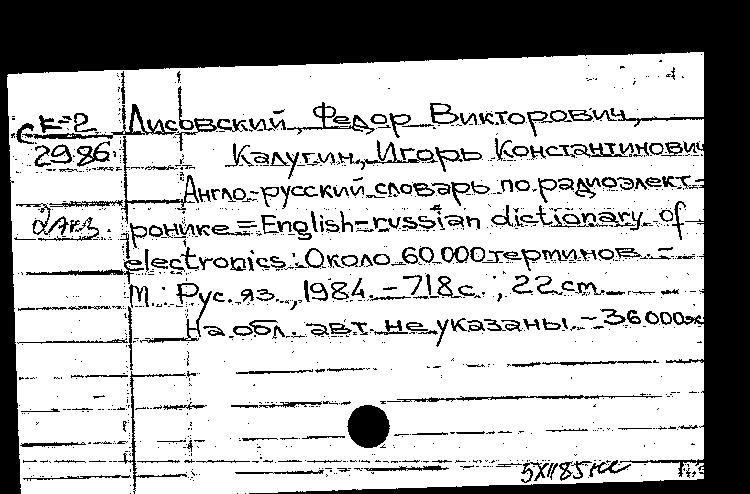 К-2 Лисовский, Федор Викторович,
29.86. Калугин, Игорь Константинович
Англо-русский словарь по радиоэлект-
2 экз. ронике = English-russian dictionary of
electronics : Около 60 000 терминов. -
М : Рус. яз., 1984. - 718 с. ; 22 cm.
На обл. авт. не указаны. - 36 000 эк